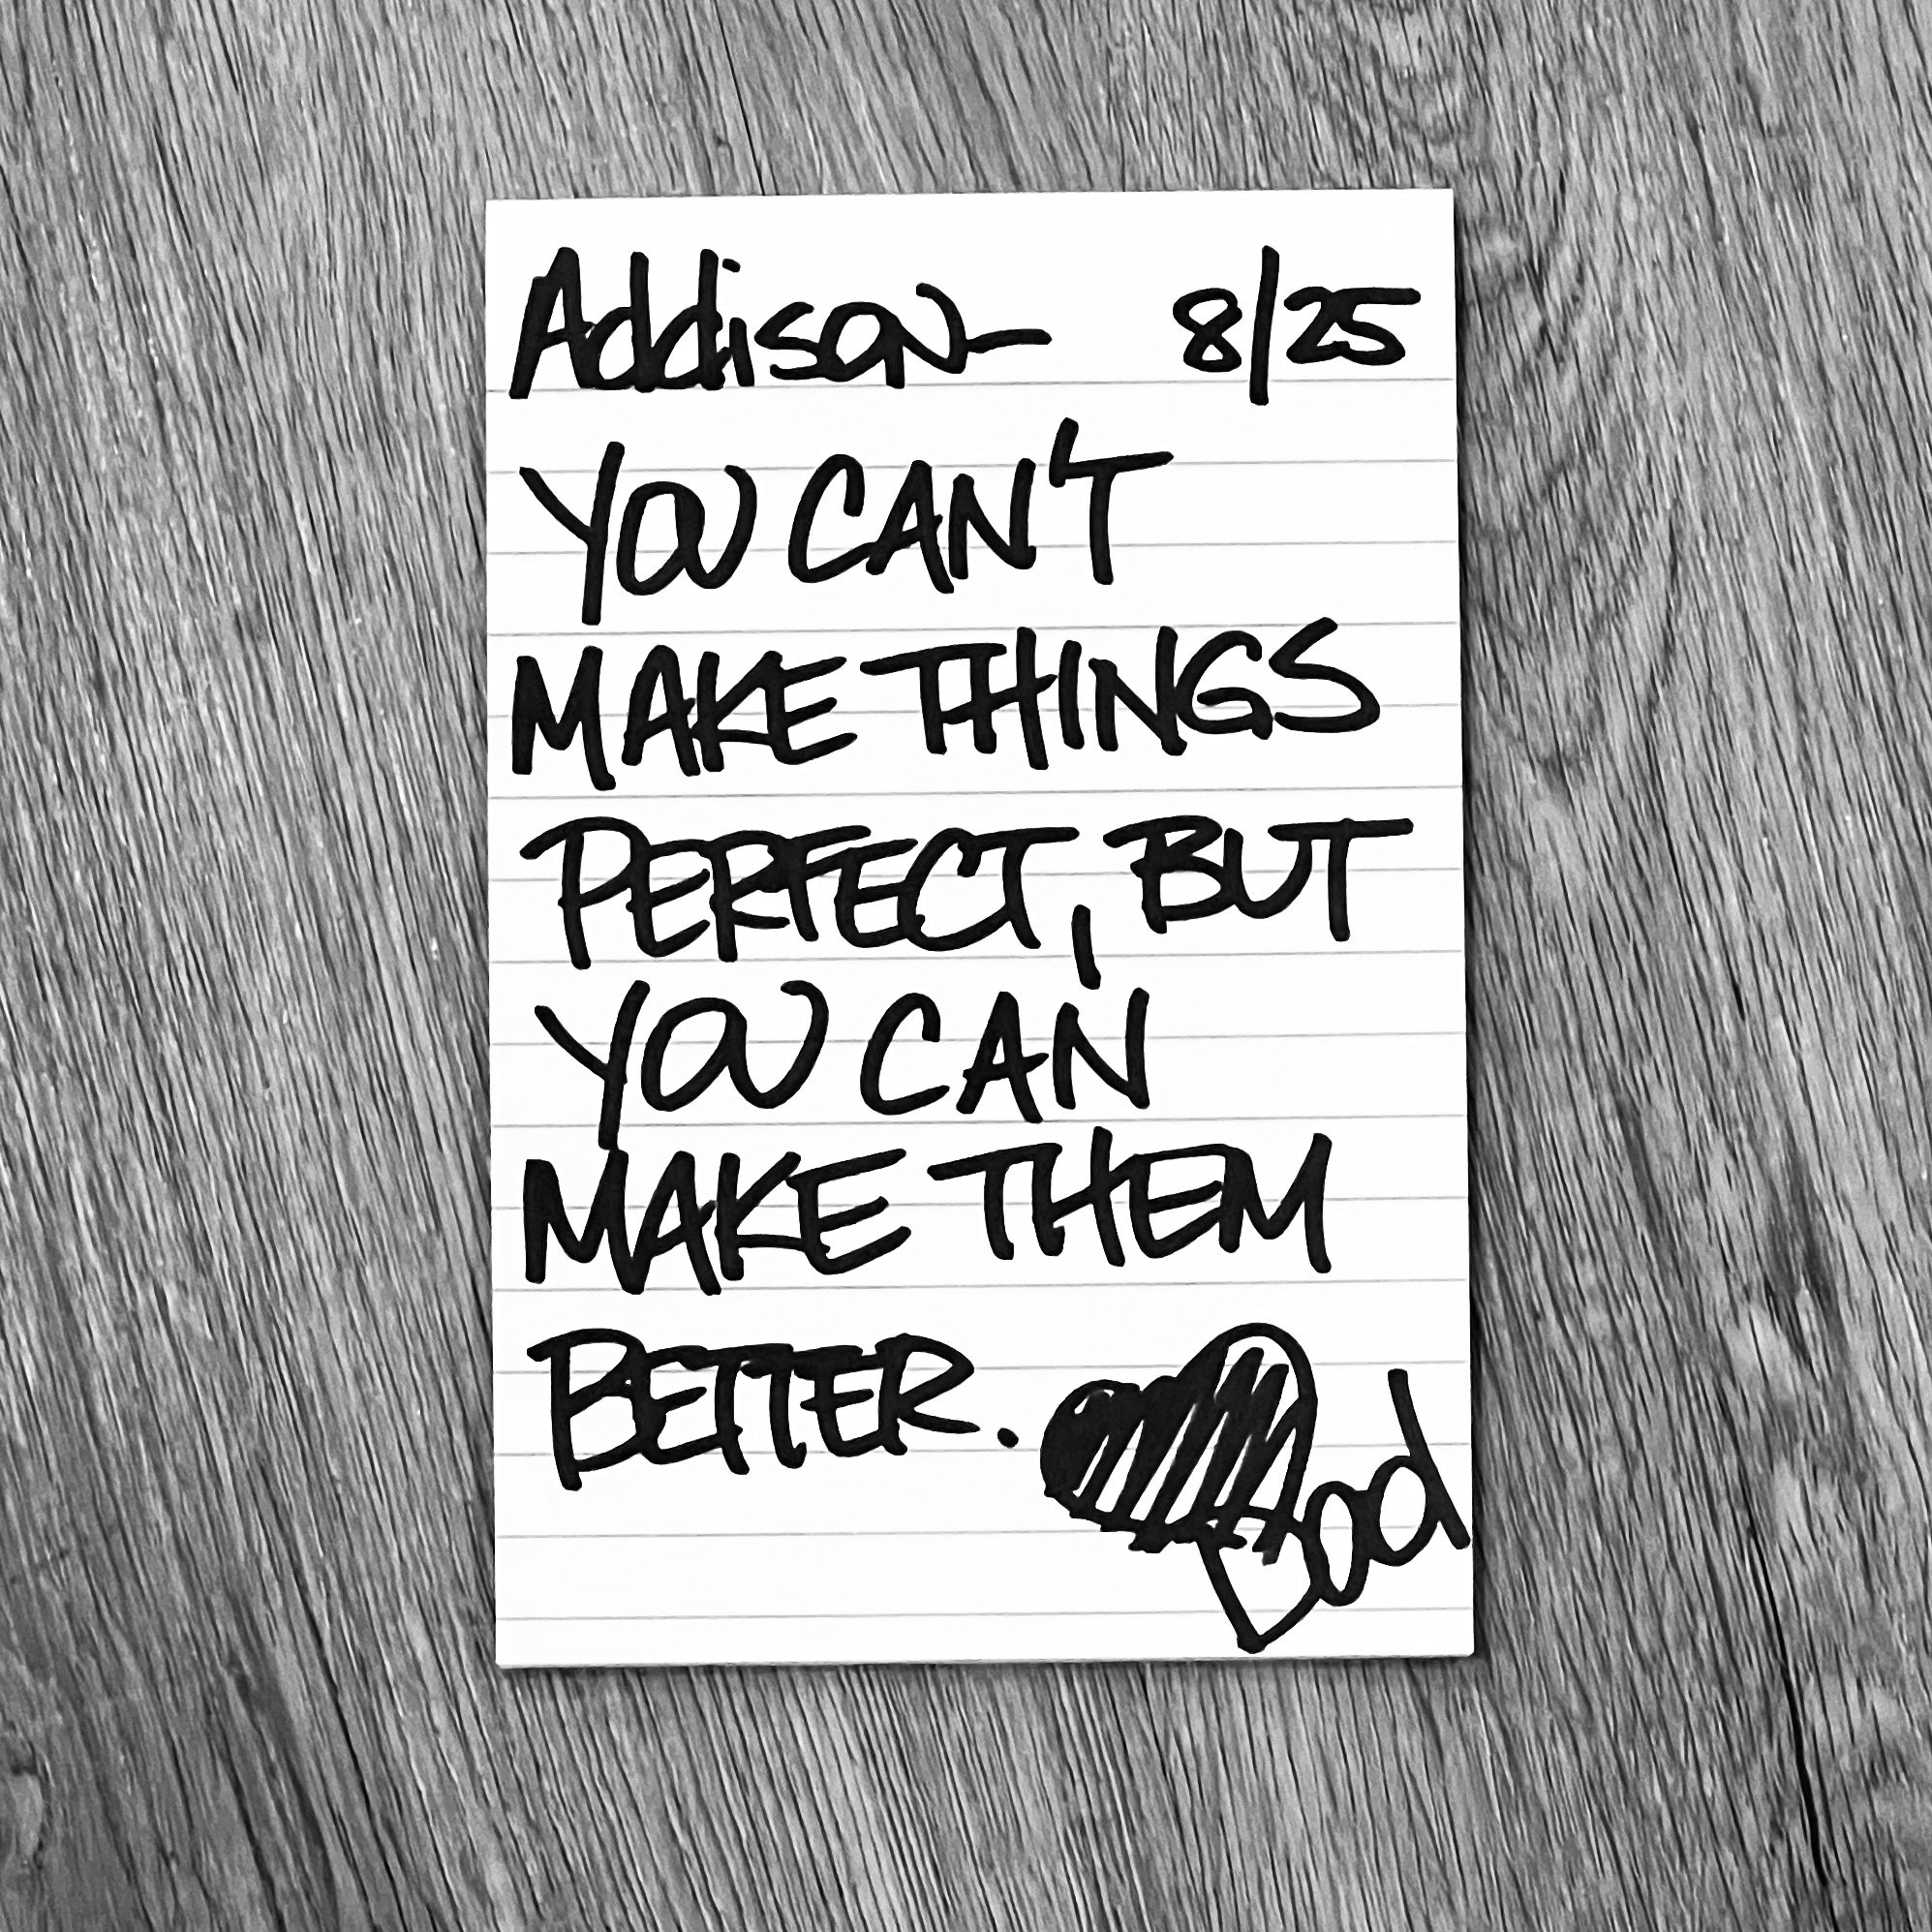 Addison— 8/25
YOU CAN'T
MAKE THINGS
PERFECT, BUT
YOU CAN
MAKE THEM
BETTER.
Dad